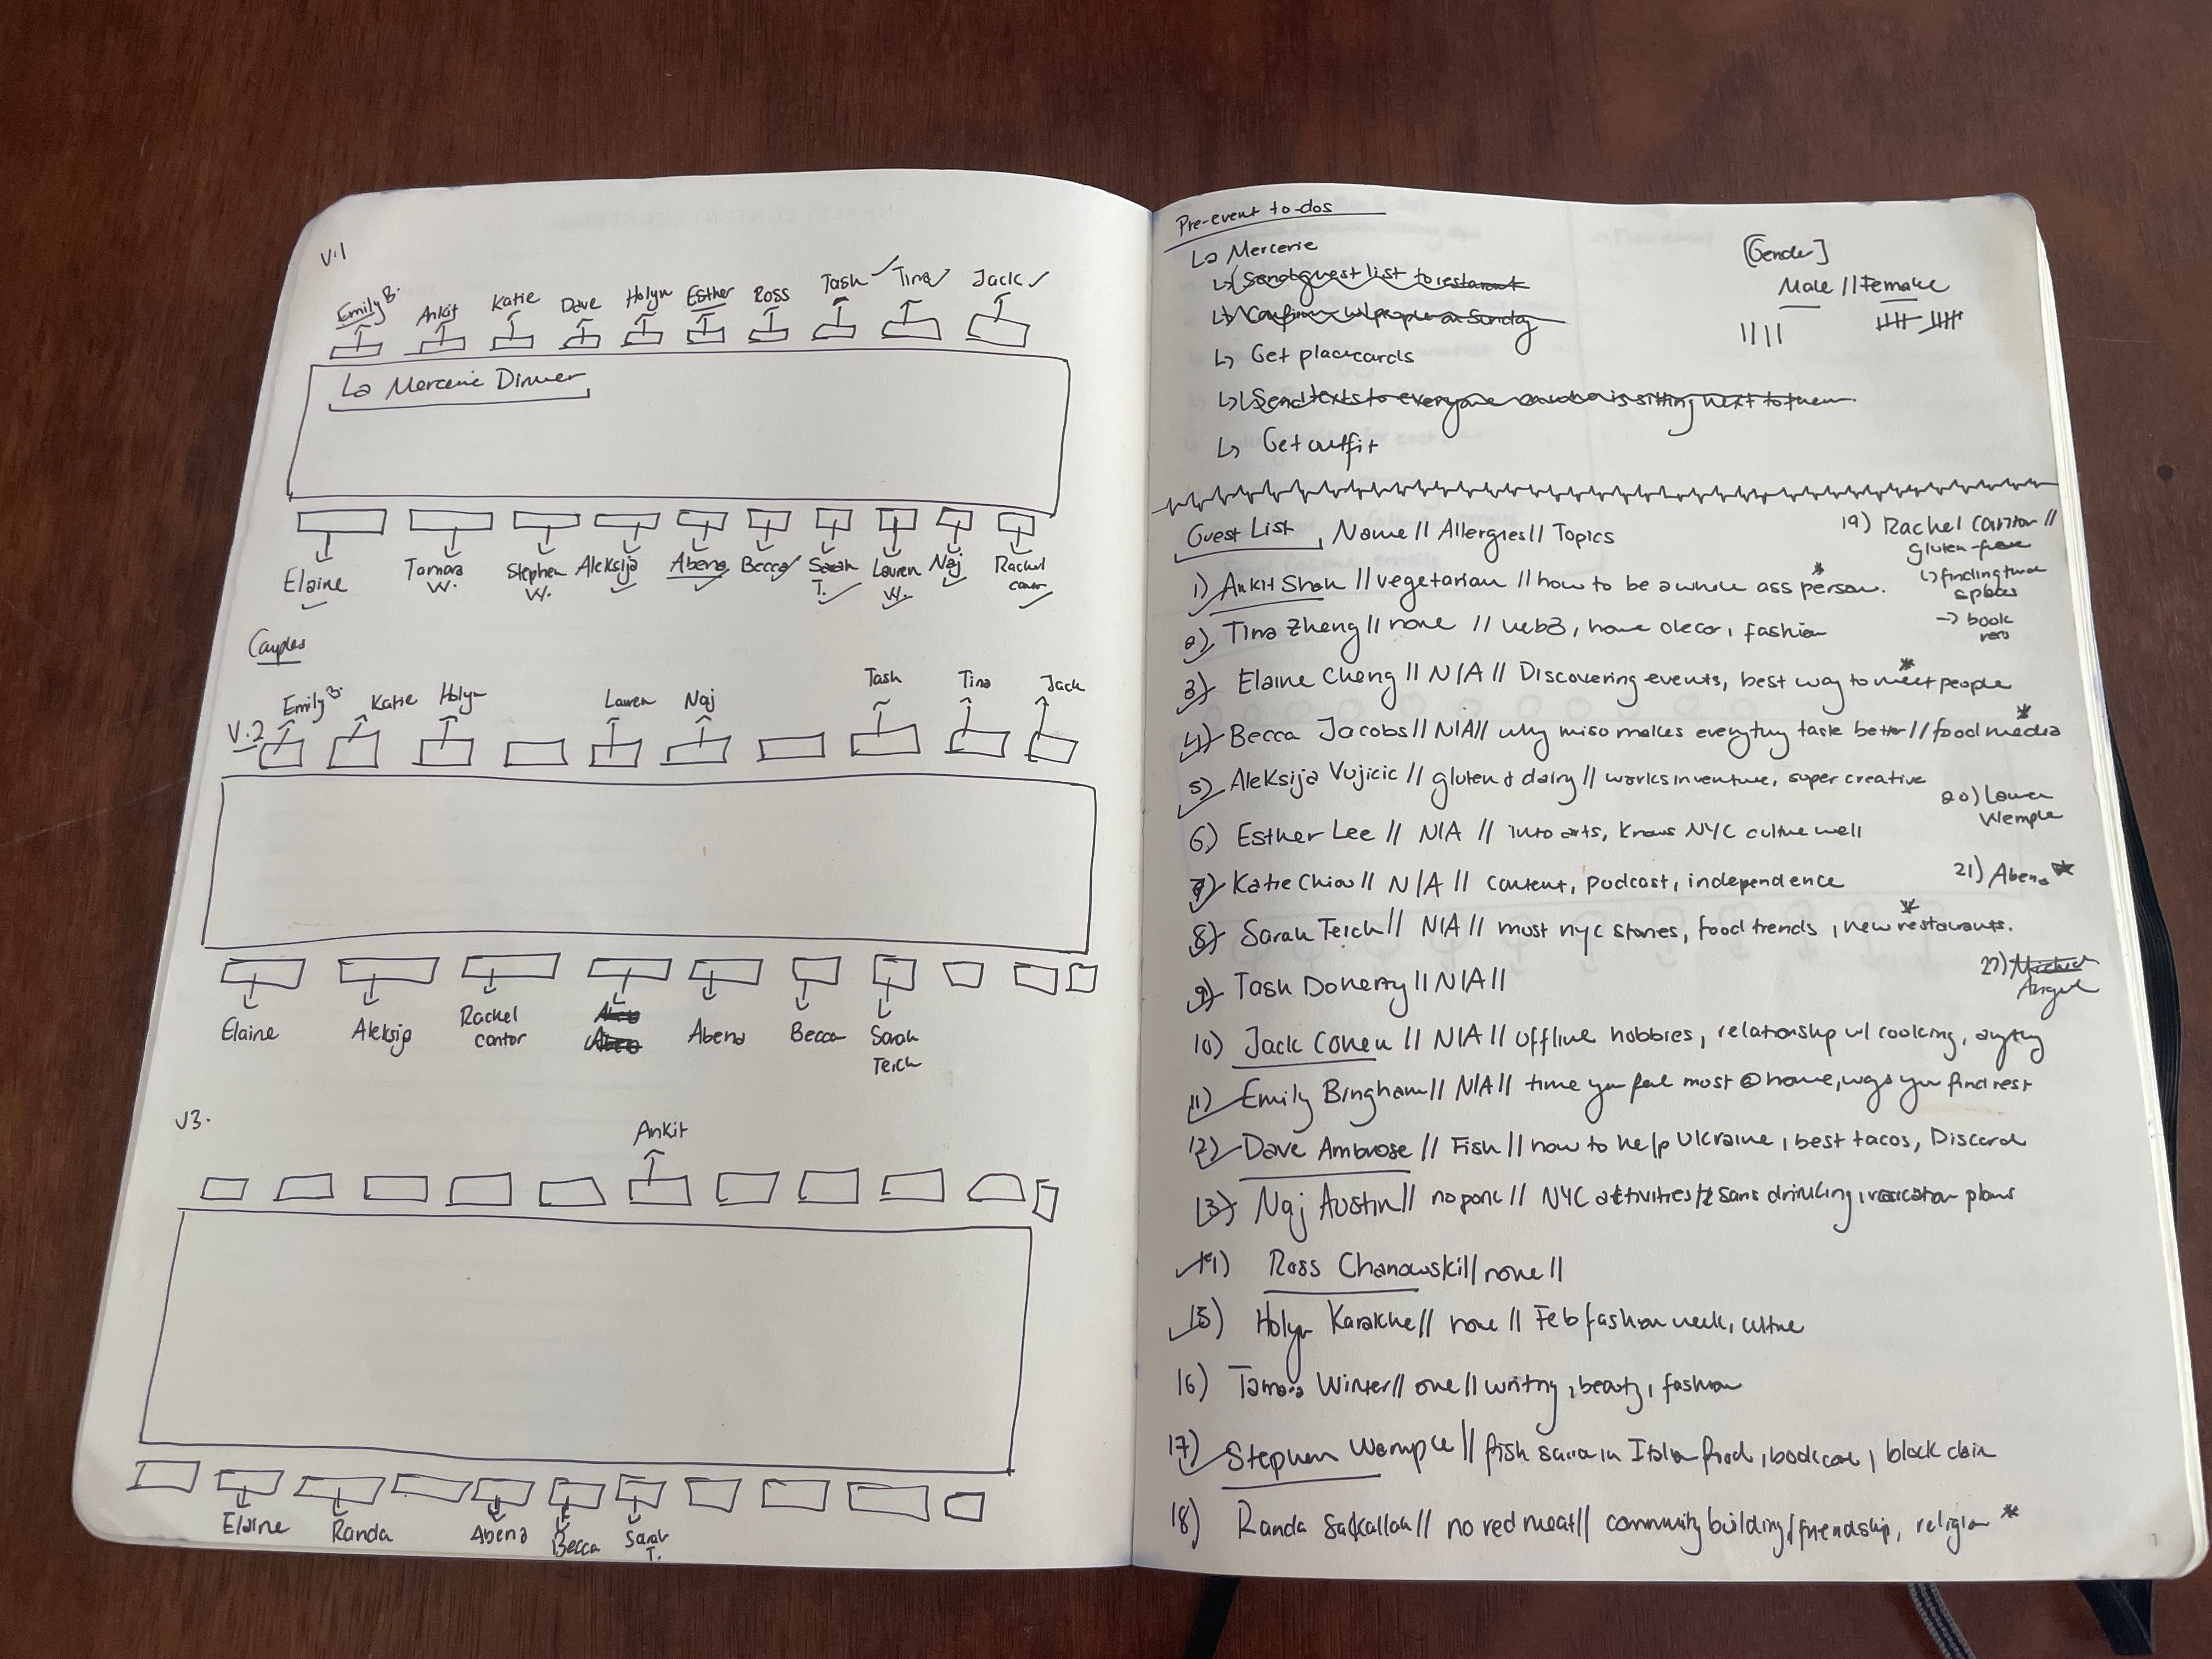 V.1
Emily B. Ankit Katie Dave Holyn Esther Ross Tash Tina Jack
La Mercerie Dinner
Elaine Tamara W. Stephen W. Aleksija Abena Becca Sarah T. Lauren W. Naj Rachel cantor
Couples
V.2
Emily B. Katie Holyn Lauren Naj Tash Tina Jack
Elaine Aleksija Rachel cantor Abena Becca Sarah Teich
V3.
Ankit
Elaine Randa Abena Becca Sarah T.
Pre-event to-dos
La Mercerie
Send guest list to restaurant
Confirm w/ people on Sunday
Get placecards
Send texts to everyone on who is sitting next to them
Get outfit
[Gender]
Male // Female
Guest List, Name // Allergies // Topics
1) Ankit Shah // vegetarian // how to be a whole ass person.
2) Tina Zheng // none // web3, home decor, fashion
3) Elaine Cheng // N/A // Discovering events, best way to meet people
4) Becca Jacobs // N/A // why miso makes everything taste better // food media
5) Aleksija Vujicic // gluten & dairy // works in venture, super creative
6) Esther Lee // N/A // into arts, knows NYC culture well
7) Katie Chiou // N/A // content, podcast, independence
8) Sarah Teich // N/A // most nyc stories, food trends, new restaurants.
9) Tash Doherty // N/A //
10) Jack Cohen // N/A // offline hobbies, relationship w/ cooking, anything
11) Emily Bingham // N/A // time you feel most @ home, ways you find rest
12) Dave Ambrose // Fish // how to help Ukraine, best tacos, Discord
13) Naj Austin // no pork // NYC activities sans drinking, vacation plans
14) Ross Chanowski // none //
15) Holyn Karakhe // none // Feb fashion week, culture
16) Tamara Winter // one // writing, beauty, fashion
17) Stephen Wemple // fish sauce in Italian food, block chain
18) Randa Sakallah // no red meat // community building/friendship, religion
19) Rachel Cantor //
gluten-free
finding third spaces
→ book
20) Lauren Wemple
21) Abena
22) Angel